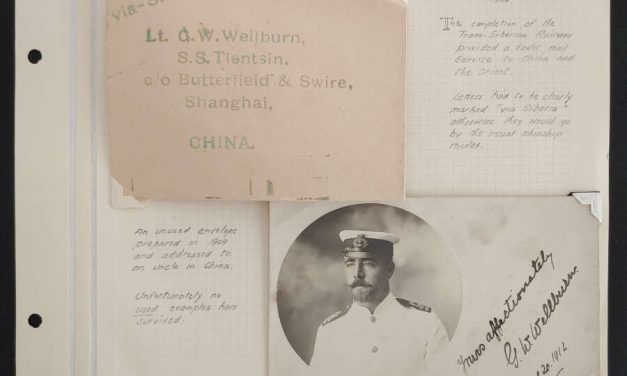 via-S
Lt. G.W. Wellburn,
S.S. Tientsin,
c/o Butterfield & Swire,
Shanghai,
CHINA.
The completion of the
Trans-Siberian Railway
provided a faster mail
service to China and
the Orient.
Letters had to be clearly
marked "via Siberia"
otherwise they would go
by the usual steamship
routes.
An unused envelope
prepared in 1909
and addressed to
an uncle in China.
Unfortunately no
used examples have
survived.
Yours affectionately
G. W. Wellburn.
1912